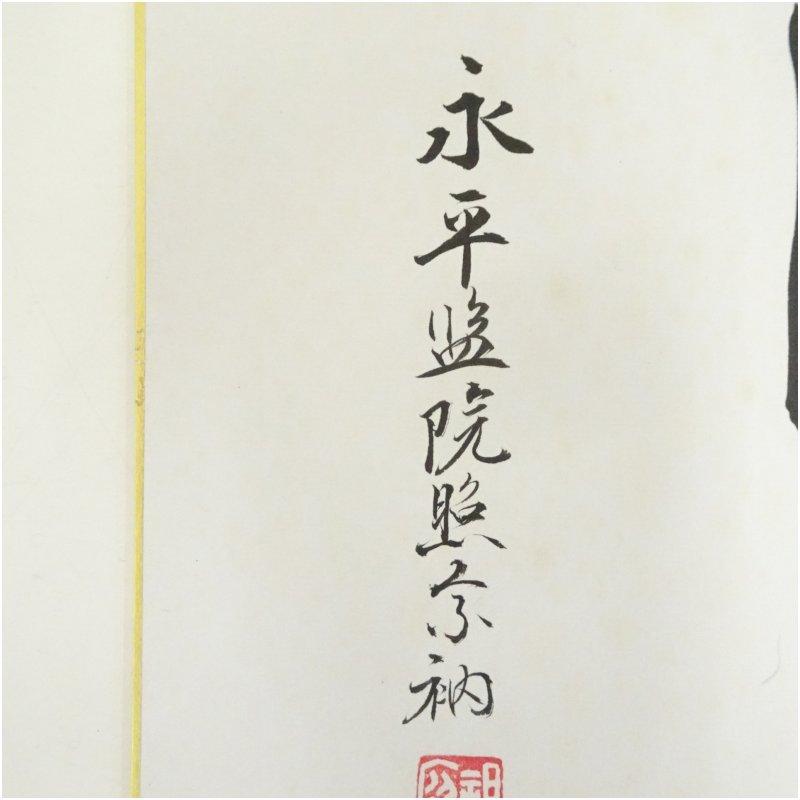 永平監院照衲